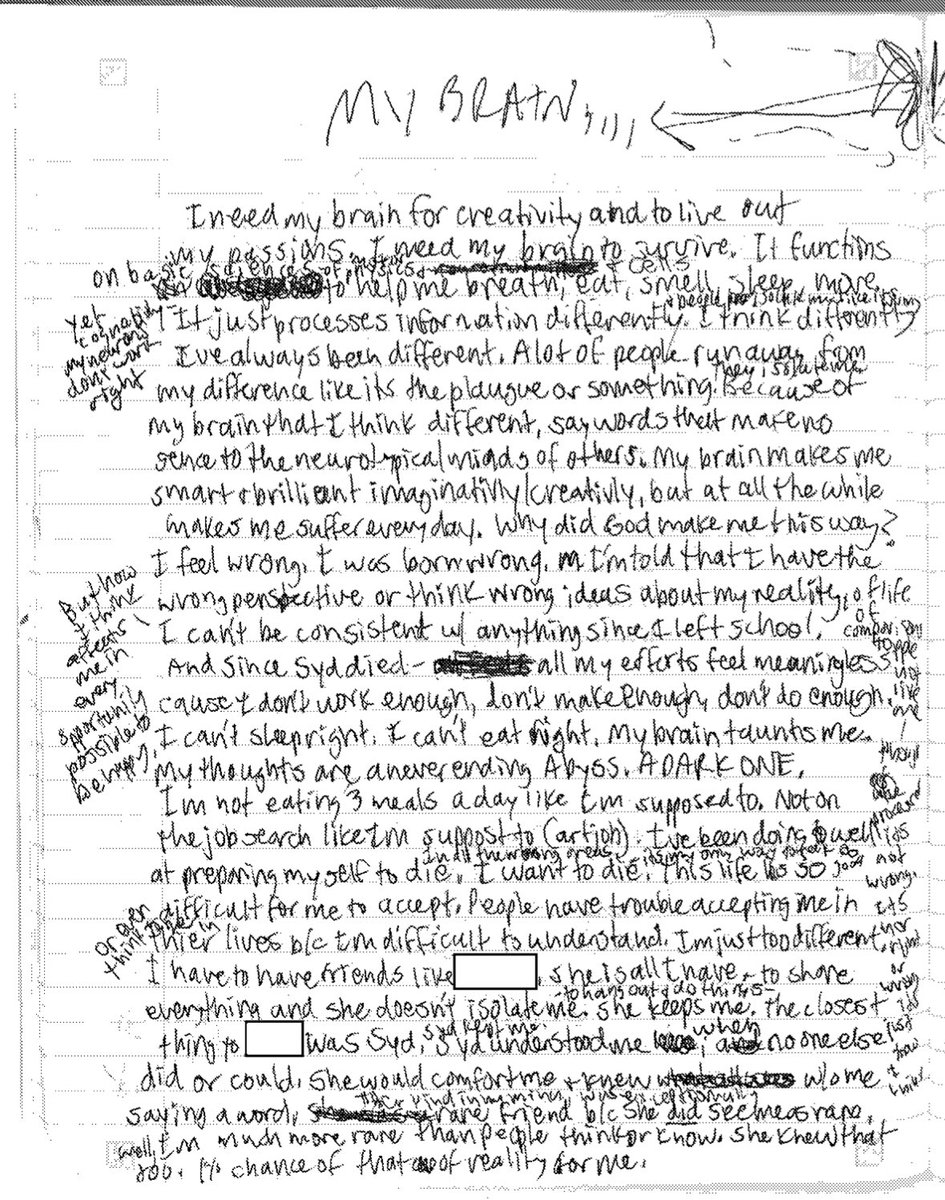 MY BRAIN,,,,
I need my brain for creativity and to live out
my passions. I need my brain to survive. It functions
on basic sciences of physics + matter + cells
to help me breath, eat, smell, sleep, more
yet cognativly my neurons dont work right
! It just processes information differently. I think differently
I've always been different. A lot of people run away from
they isolate me.
my difference like its the plaugue or something. Because of
my brain that I think different, say words that make no
sence to the neurotypical minds of others. My brain makes me
smart + brilliant imaginativly/creativly, but at all the while
makes me suffer every day. Why did God make me this way?
I feel wrong. I was born wrong. I'm told that I have the
wrong perspective or think wrong ideas about my reality, of life
I can't be consistent w/ anything since I left school,
And since Syd died - all my efforts feel meaningless
cause I don't work enough, don't make enough, don't do enough.
of comparison to ppl not like me!
But how I think affects me in every opportunity possible to be happy,
I can't sleep right. I can't eat right. My brain taunts me.
My thoughts are a never ending Abyss. A DARK ONE.
I'm not eating 3 meals a day like I'm supposed to. Not on
the job search like I'm suppost to (action). I've been doing well
in all the wrong areas, its my only way to feel
at preparing myself to die. I want to die. This life is so
difficult for me to accept. People have trouble accepting me in
or even think
thier lives b/c I'm difficult to understand. I'm just too different,
is not wrong. its nor right or wrong its just how I think
I have to have friends like, she is all I have - to share
- to hang out + do things -
everything and she doesn't isolate me. She keeps me. The closest
thing to was Syd, Syd kept me. Syd understood me when no one else
did or could. She would comfort me + knew w/o me
saying a word. rare friend b/c she did see me as rare,
well, I'm much more rare than people think or know. She knew that
too. 1% chance of that of reality for me.